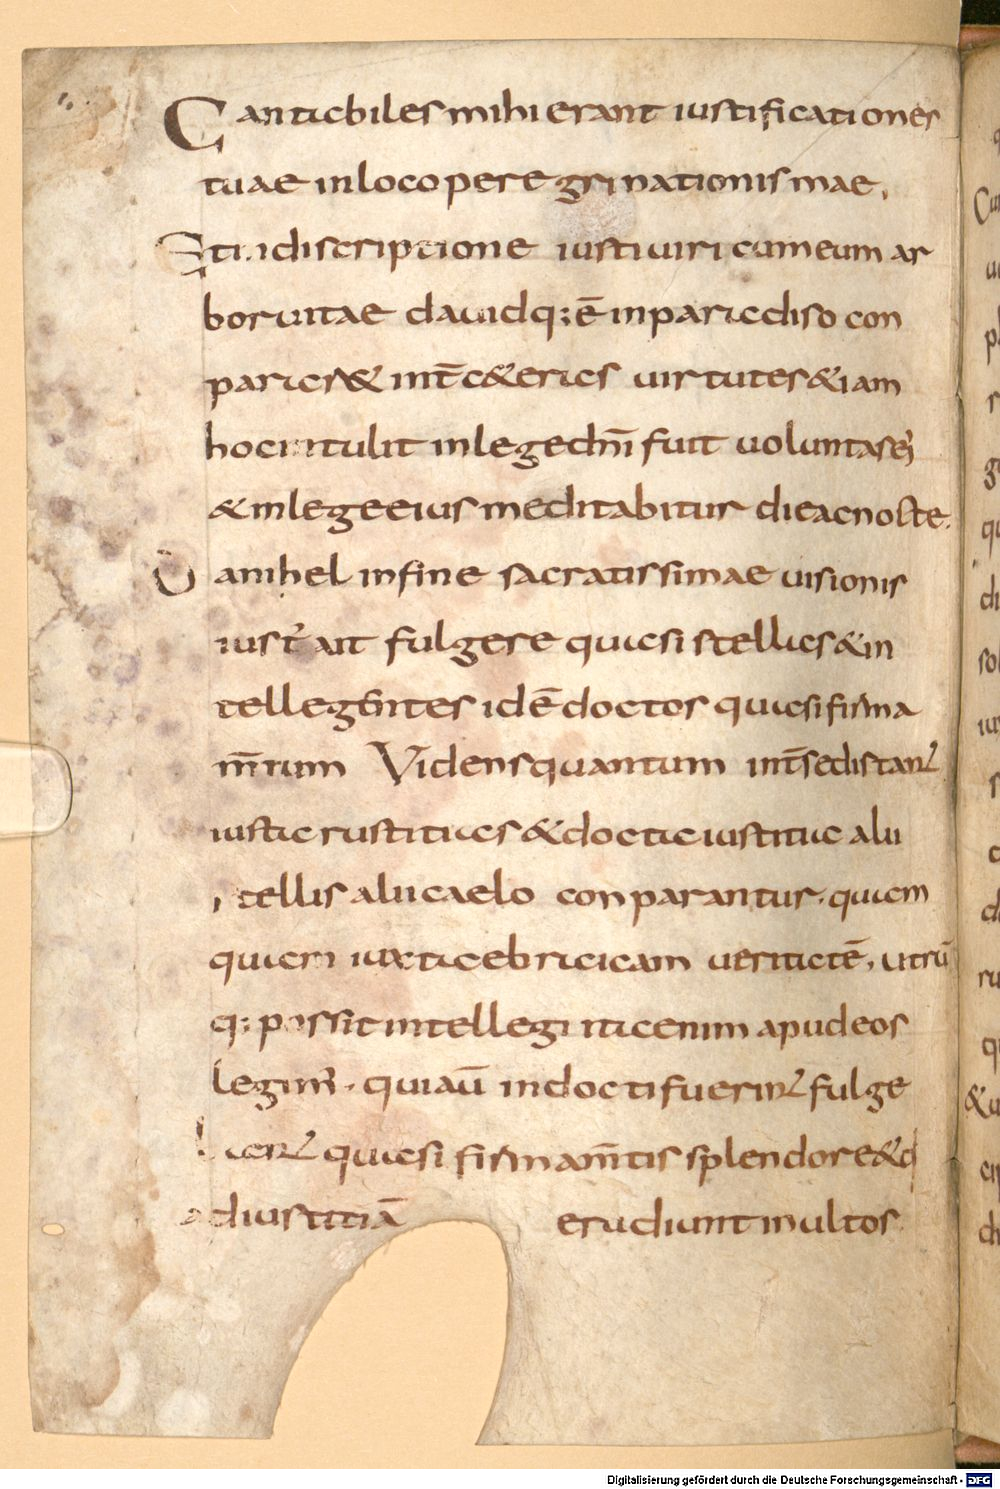 Cantabiles mihi erant iustificationes
tuae inloco peregrinationis mae.
Et indiscriptione iusti uiri cum eum ar
bor uitae dauid q;ē inparadiso con
parass& int̄ c&eras uirtutes & iam
hoc intulit inlege dn̄i fuit uoluntas ei'
& inlege eius meditabitur die ac nocte.
Danihel infine sacratissimae uisionis
iust' ait fulgere quasi stellas & in
tellegentes idē doctos quasi firma
m̄tum Videns quantum int̄ se distant
iusta rustitias & docta iustitia alii
stellis alii caelo conparantur. quam
quam iuxta ebraicam ueritatē, utrū
q; possit intellegi ita enim apud eos
legim'. qui aū indocti fuerint fulge
bunt quasi firmam̄tis splendore & q
ad iustitiā erudiunt multos
Digitalisierung gefördert durch die Deutsche Forschungsgemeinschaft - DFG